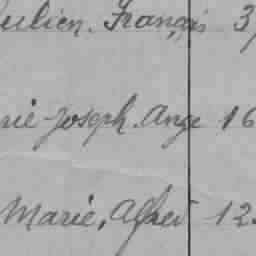 ulien. Français 3
rie-Joseph. Ange 16
Marie, Alfred 12